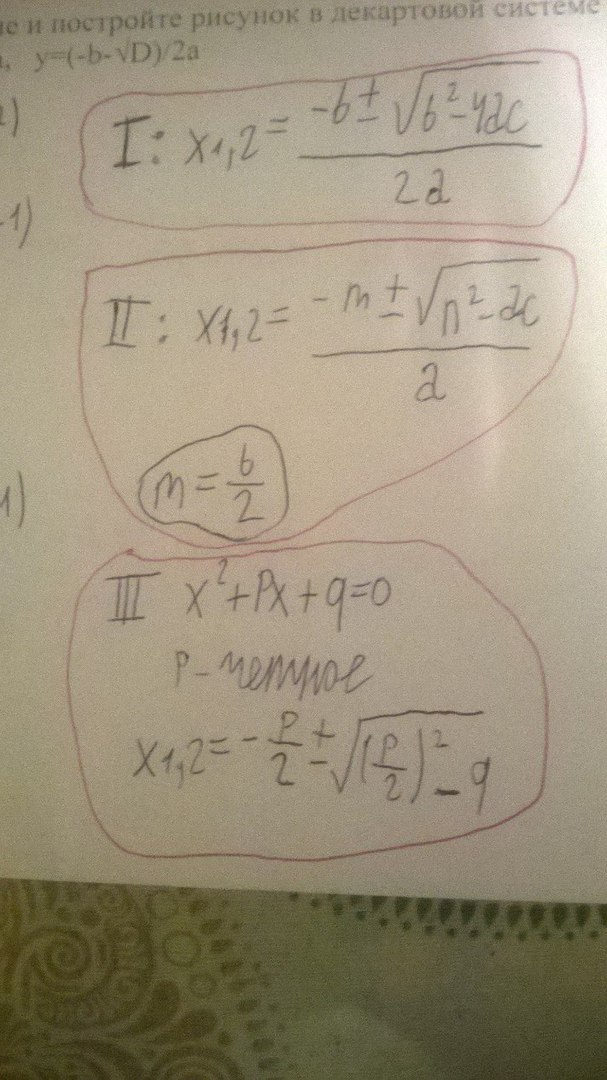 и постройте рисунок в декартовой системе
y=(-b-√D)/2a
I: x1,2= (-b±√(b²-4ac))/2a
1)
II: x1,2= (-m±√(n²-ac))/a
m=b/2
III x²+Px+q=0
P-четное
x1,2=-P/2±√((P/2)²-q)